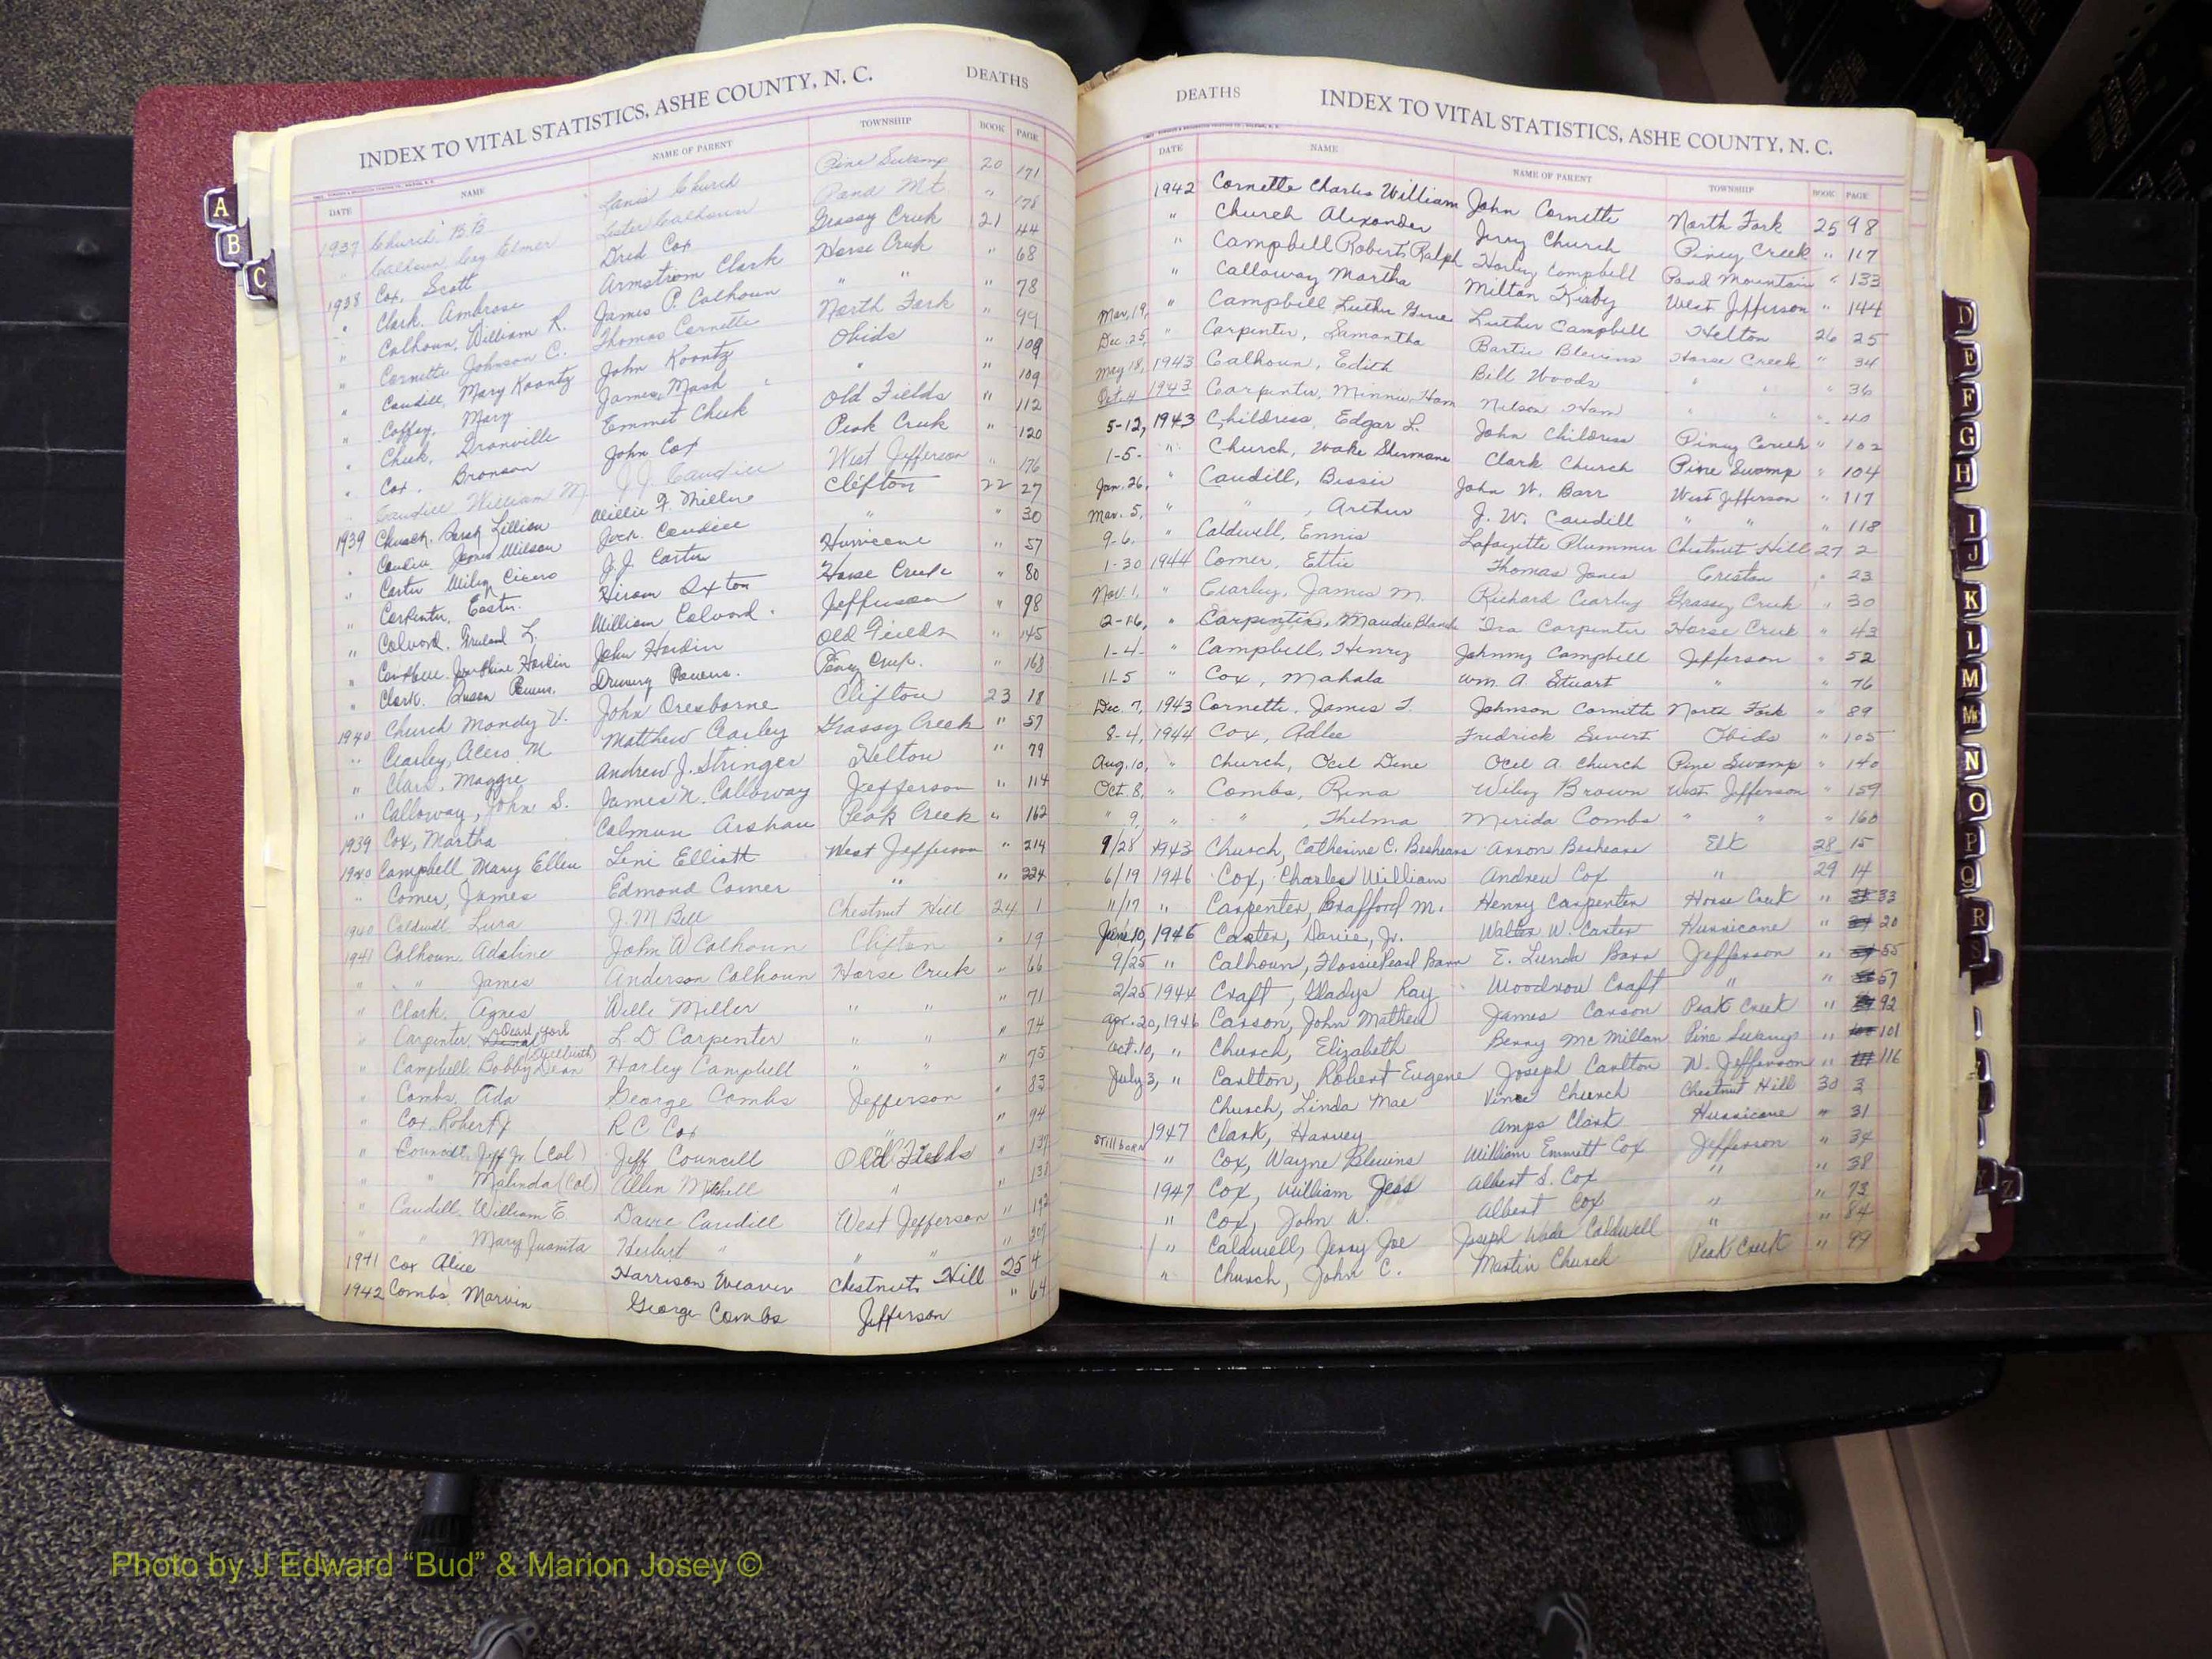 INDEX TO VITAL STATISTICS, ASHE COUNTY, N. C. DEATHS
DATE NAME NAME OF PARENT TOWNSHIP BOOK PAGE
1937 Church B.B. Church Pine Swamp 20 171
" Calhoun Elmer Lester Calhoun Pond Mt. " 178
1938 Cox, Scott Dred Cox Grassy Creek 21 44
" Clark, Ambrose Armstrom Clark Horse Creek " 68
" Calhoun, William R. James P. Calhoun " " 78
" Cornette Johnson C. Thomas Cornette North Fork " 99
" Caudill, Mary Koontz John Koontz Obids " 109
" Coffey, Mary James Mash " " 109
" Cheek, Granville Emmet Cheek Old Fields " 112
" Cox, Bronson John Cox Peak Creek " 120
" Caudill William M. J.J. Caudill West Jefferson " 176
1939 Church, Sarah Lillian Millie F. Miller Clifton 22 27
" Caudill James Wilson Jack Caudill " " 30
" Carter Wiley Cicero J.J. Carter Hurricane " 57
" Carpenter, Easter Hiram Sexton Horse Creek " 80
" Colvard, L. William Colvard Jefferson " 98
" Josephine Hardin John Hardin Old Fields " 145
" Clark, Susan Powers Drewery Powers Piney Creek " 163
1940 Church Mandy V. John Oresborne Clifton 23 18
" Cearley, Acero M. Matthew Cearley Grassy Creek " 57
" Clark, Maggie Andrew J. Stringer Helton " 79
" Calloway, John S. James N. Calloway Jefferson " 114
1939 Cox, Martha Calmun Arshau Peak Creek " 162
1940 Campbell Mary Ellen Levi Elliott West Jefferson " 214
" Comer, James Edmond Comer " " 224
1940 Caldwell Lura J.M Bell Chestnut Hill 24 1
1941 Calhoun Adaline John A Calhoun Clifton " 19
" " James Anderson Calhoun Horse Creek " 66
" Clark, Agnes Wille Miller " " " 71
" Carpenter, L D Carpenter " " " 74
" Campbell Bobby Dean (Stillbirth) Harley Campbell " " " 75
" Combs, Ada George Combs Jefferson " 83
" Cox Robert R C Cox " " 94
" Councill, Jeff Jr. (Col) Jeff Councill Old Fields " 137
" " Malinda (Col) Allen Mitchell " " 138
" Caudill William E. Dave Caudill West Jefferson " 192
" " Mary Juanita Herbert " " " " 201
1941 Cox Alice Harrison Weaver Chestnut Hill 25 4
1942 Combs Marvin George Combs Jefferson " 64
DEATHS INDEX TO VITAL STATISTICS, ASHE COUNTY, N. C.
DATE NAME NAME OF PARENT TOWNSHIP BOOK PAGE
1942 Cornette Charles William John Cornette North Fork 25 98
" Church Alexander Jerry Church Piney Creek " 117
" Campbell Roberts Ralph Harley Campbell Pond Mountain " 133
" Calloway Martha Milton Kirby West Jefferson " 144
Mar. 19, " Campbell Luther Gene Luther Campbell Helton 26 25
Dec. 25, " Carpenter, Samantha Bartie Blevins Horse Creek " 34
May 18, 1943 Calhoun, Edith Bill Woods " " " 36
Oct. 4 1943 Carpenter, Minnie Ham Nelson Ham " " " 40
5-12, 1943 Childress, Edgar L. John Childress Piney Creek " 102
1-5- " Church, Wake Shermane Clark Church Pine Swamp " 104
Jan. 26, " Caudill, Bessie John W. Barr West Jefferson " 117
Mar. 5, " " , Arthur J. W. Caudill " " " 118
9-6. " Caldwell, Ennis Lafayette Plummer Chestnut Hill 27 2
1-30 1944 Comer, Ettie Thomas Jones Creston " 23
Nov. 1, " Cearley, James M. Richard Cearley Grassy Creek " 30
2-16, " Carpenter, Maudie Blanch Ira Carpenter Horse Creek " 43
1-4- " Campbell, Henry Johnny Campbell Jefferson " 52
11-5 " Cox, Mahala Wm. A. Stuart " " 76
Dec. 7, 1943 Cornette, James T. Johnson Cornette North Fork " 89
8-4, 1944 Cox, Adlee Fredrick Severt Obids " 105
Aug. 10, " Church, Ocil Dene Ocil A. Church Pine Swamp " 140
Oct. 8, " Combs, Rina Wiley Brown West Jefferson " 159
" 9, " " , Thelma Merida Combs " " " 160
9/28 1943 Church, Catherine C. Beshears Arron Beshears Elk 28 15
6/19 1946 Cox, Charles William Andrew Cox " 29 14
11/17 " Carpenter, Crafford M. Henry Carpenter Horse Creek " 33
June 10, 1946 Carter, Darice, Jr. Walter W. Carter Hurricane " 20
9/25 " Calhoun, Flossie Pearl Barr E. Lunda Barr Jefferson " 55
2/25 1944 Craft, Gladys Ray Woodrow Craft " " 57
Apr. 20, 1946 Carson, John Mathew James Carson Peak Creek " 92
Oct. 10, " Church, Elizabeth Benny McMillan Pine Swamp " 101
July 3, " Carlton, Robert Eugene Joseph Carlton W. Jefferson " 116
Church, Linda Mae Vince Church Chestnut Hill 30 3
1947 Clark, Harvey Amps Clark Hurricane " 31
Still born " Cox, Wayne Blevins William Emmett Cox Jefferson " 34
1947 Cox, William Jess Albert S. Cox " " 38
" Cox, John W. Albert Cox " " 73
" Caldwell, Jerry Joe Joseph Wade Caldwell " " 84
" Church, John C. Martin Church Peak Creek " 99
A
B
C
D
E
F
G
H
I
J
K
L
M
Mc
N
O
P
Q
R
Z
Photo by J Edward “Bud” & Marion Josey ©